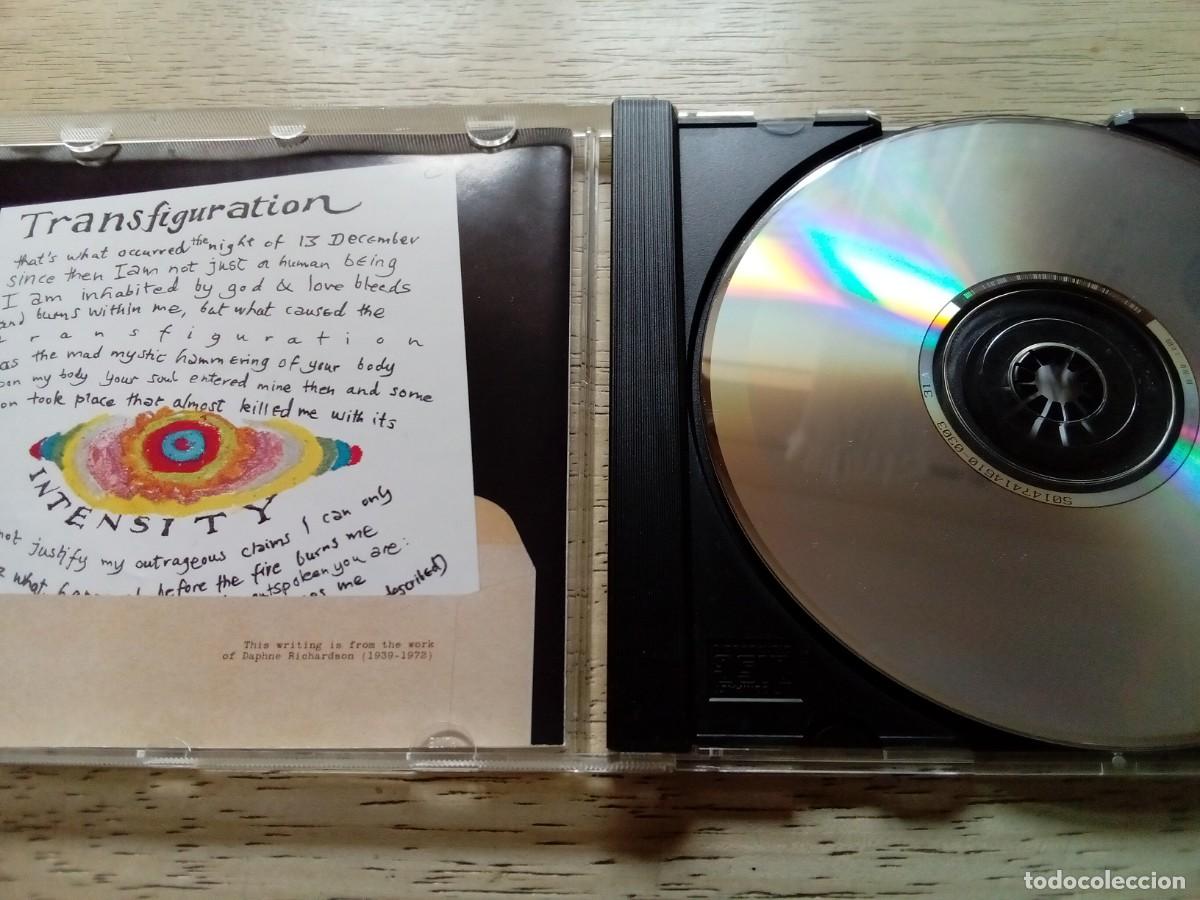 Transfiguration
that's what occurred the night of 13 December
since then I am not just a human being
I am inhabited by god & love bleeds
and burns within me, but what caused the
r a n s f i g u r a t i o n
as the mad mystic hammering of your body
on my body your soul entered mine then and some
on took place that almost killed me with its
INTENSITY
not justify my outrageous claims I can only
what before the fire burns me
outspoken you are:
me described)
This writing is from the work
of Daphne Richardson (1939-1972)
S0147414610-0303
31A
todocoleccion